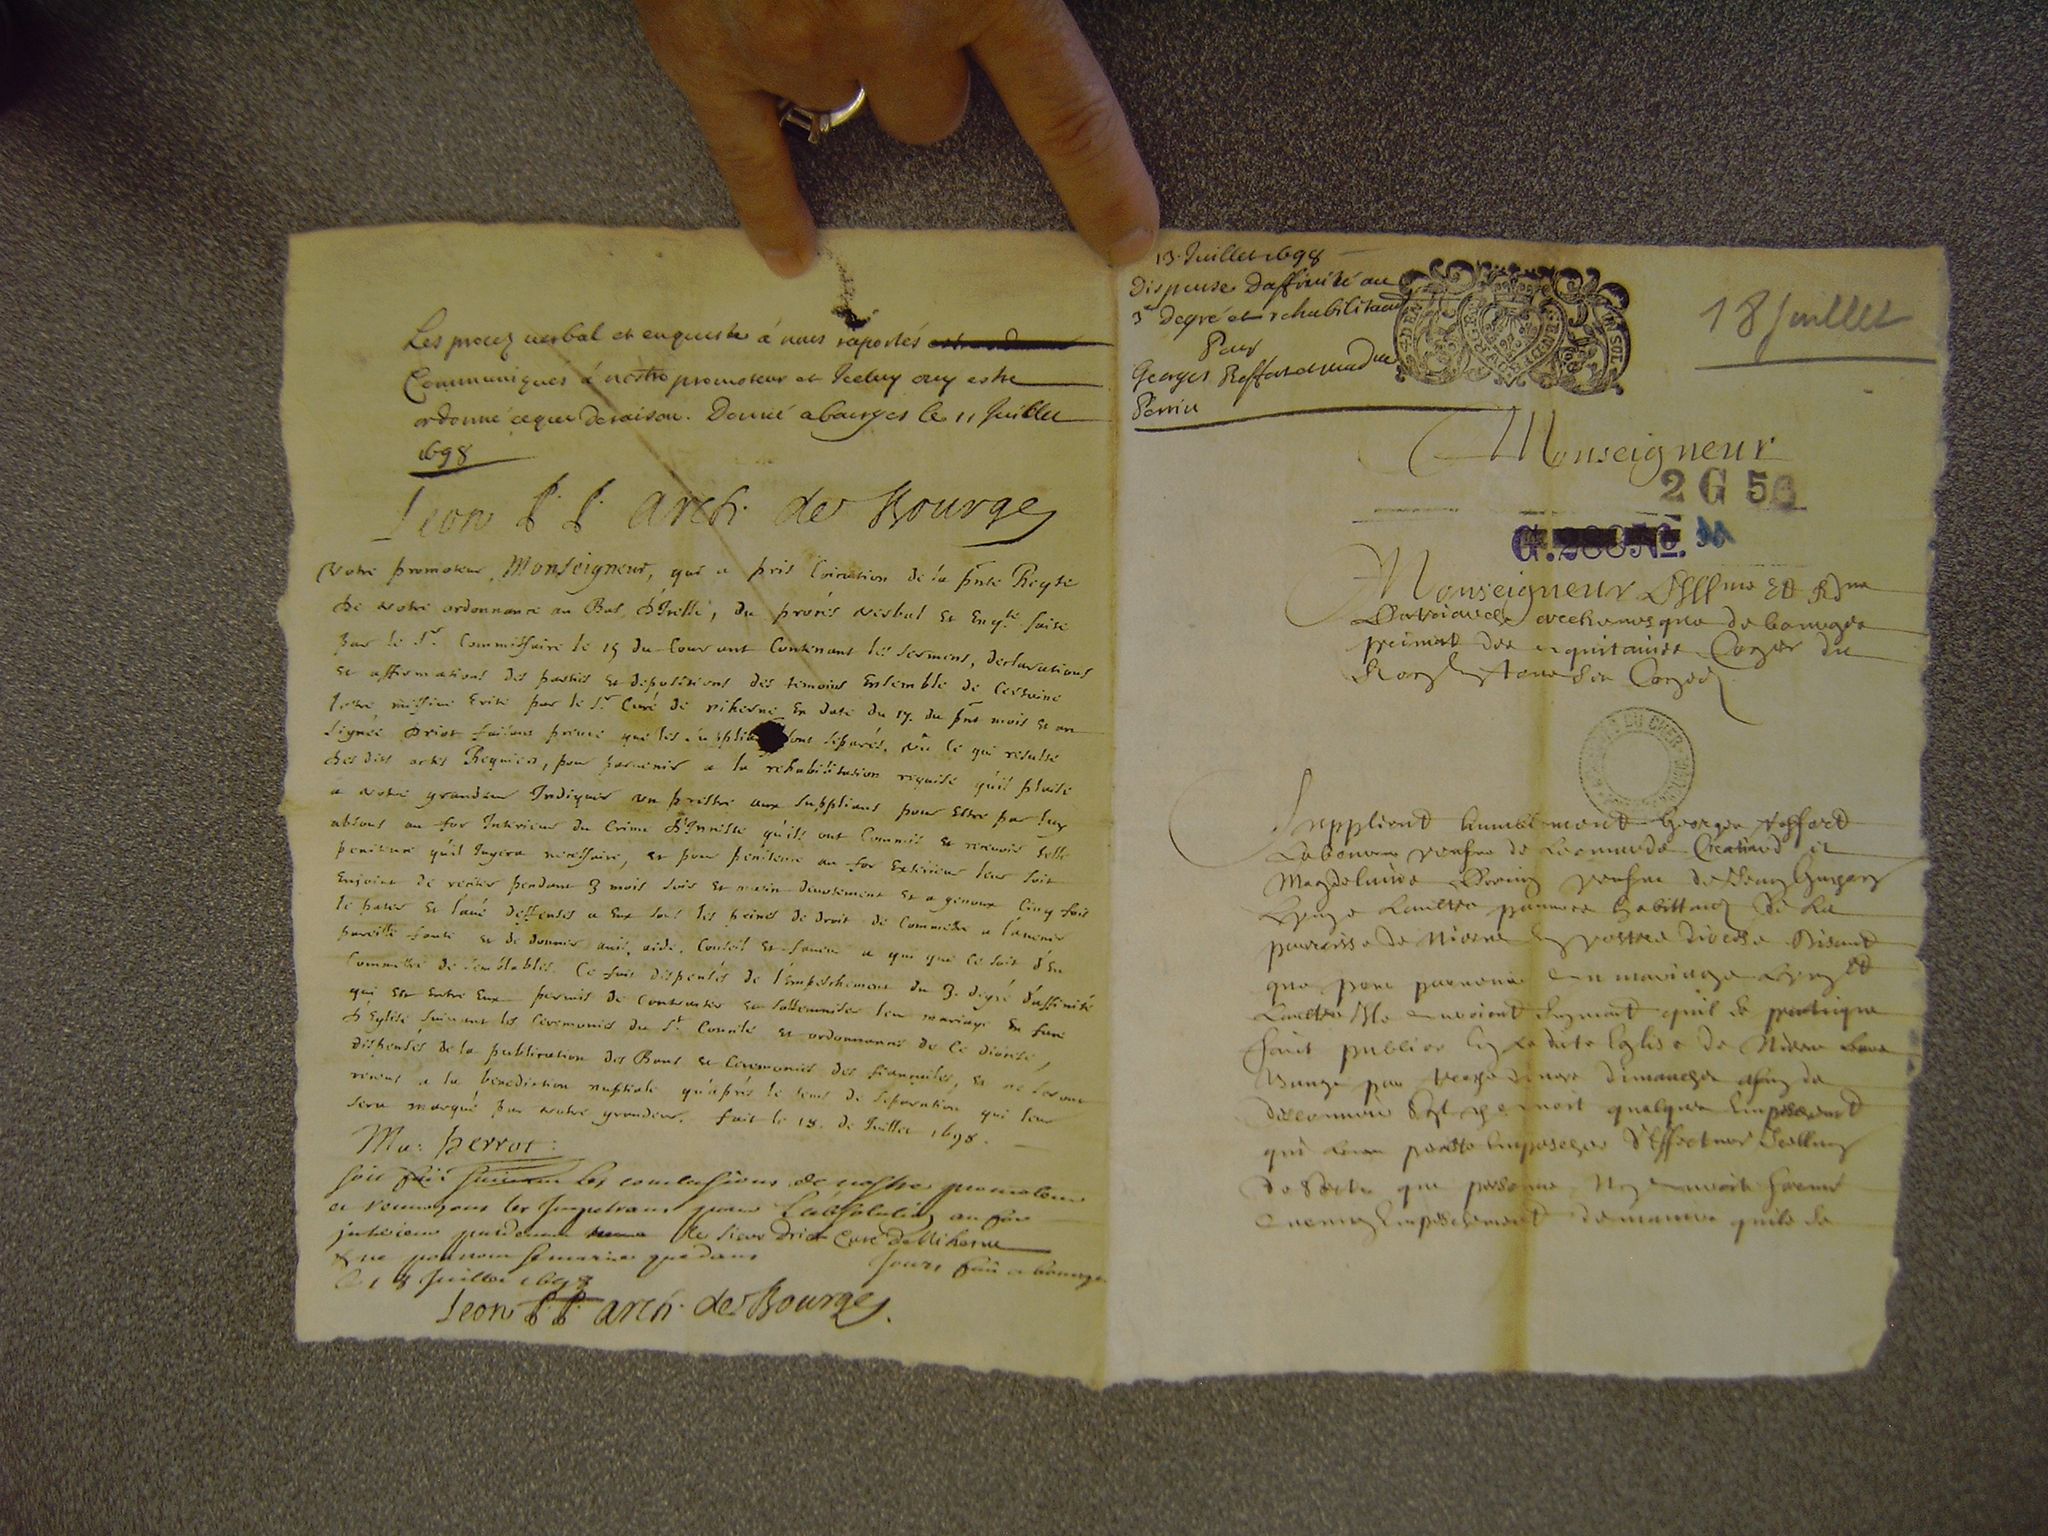 Les procez verbal et enqueste à nous raportés
Communiqués à nostre promoteur et Iceluy ouy estre
ordonné ce que de raison. Donné a bourges le 11 Juillet
1698
Leon P. P. arch. de Bourges
Votre promoteur, Monseigneur, qui a pris Com̃ication de la pñte Reqte
de votre ordonnance au Bas d'Icelle, du procés verbal et Enqte faite
par le Sr. Commissaire le 15 du Courant Contenant les sermens, declarations
et affirmations des parties et depositions des temoins Ensemble de Certaine
lettre missive Ecrite par le Sr. Curé de Niherne En date du 17. du pñt mois et an
signée Driot faisans preuve que les supplians sont separés, vû ce qui resulte
des dits actes Requiers, pour parvenir a la rehabilitation requise qu'il plaise
a votre grandeur Indiquer un prestre aux supplians pour Estre par luy
absous au for Interieur du Crime d'Inceste qu'ils ont Commis et recevoir telle
penitence qu'il Jugera necessaire, et pour penitence au for Exterieur leur soit
Enjoint de reciter pendant 3 mois soir et matin devotement et a genoux Cinq fois
le pater et l'avé deffenses a Eux sous les peines de droit de Commettre a l'avenir
pareille faute et de donner avis, aide, Conseil et faveur a qui que Ce soit d'En
Commettre de semblables. Ce fait dispensés de l'Empeschement du 3. degré d'affinité
qui est entre Eux permis de Contracter et sollemniser leur mariage En face
d'Eglise suivant les Ceremonies du St. Concile et ordonnances de Ce diocese,
dispensés de la publication des Bans et Ceremonies des fiançailles, et ne seront
receus a la benediction nuptiale qu'aprés le tems de separation qui leur
sera marqué par votre grandeur. fait le 18. de Juillet 1698.
Ma: perrot
soit fait suivant les conclusions de nostre promoteur
et renvoyons les Impetrans pour l'absolution au for
interieur pardevant le sieur driot Curé de Niherne
& ne pourront se marier que dans jours fait a bourges
le 18 Juillet 1698
Leon P. P. arch. de Bourges
13 Juillet 1698
Dispense d'affinité au
3e degré et rehabilitation
Pour
Georges Roffert et Mad.ne
Perrin
18 Juillet
Monseigneur
2 G 56
G. 280 No.
Monseigneur Illme Et Rdme
Patriarche archevesque de bourges
primat des aquitaines Conser du
Roy En tous ses Conseils
Supplient humblement Georges Roffert
Laboureur veufve de Leonarde Creahard et
Magdelaine Perrin veufve de
L'un et L'aultre pauvres habittans de La
parroisse de Nierne En vostre diocese Disant
que pour parvenir au mariage L'un Et
L'aultre Ils auroient suyvant qu'il se pratique
fait publier En La dite Esglise de Nierne Leurs
Bangs par trois divers dimanches afin de
descouvrir s'il y avoit quelque Empeschement
qui Leur peust Empescher d'Effectuer Icelluy
De sorte que personne N'y auroit formé
aucung Empeschement de maniere quils se